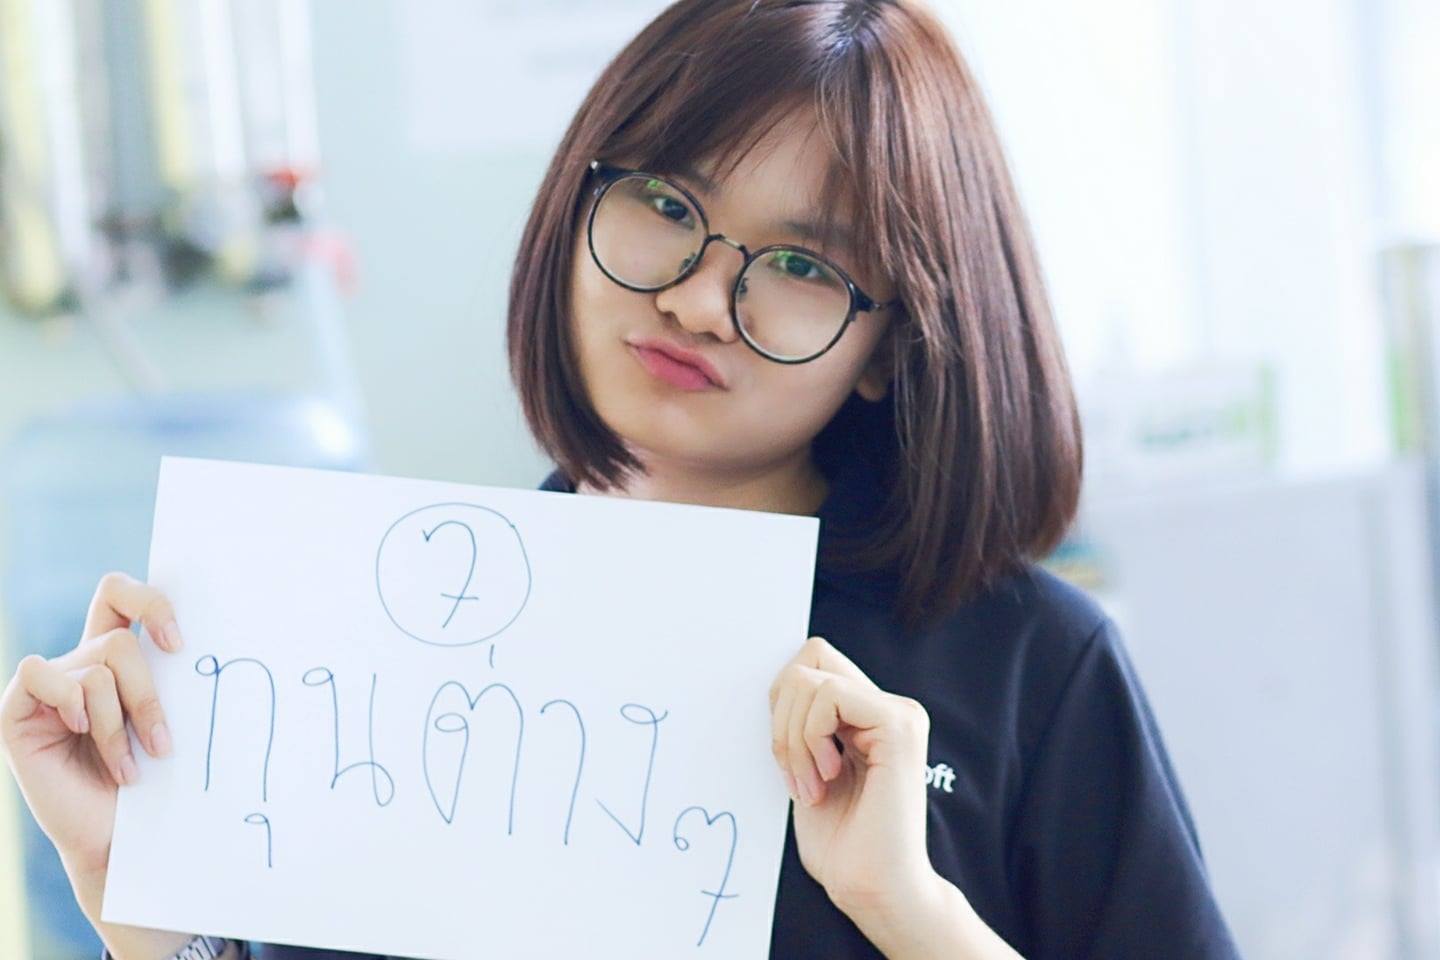 7
ทุนต่างๆ
oft